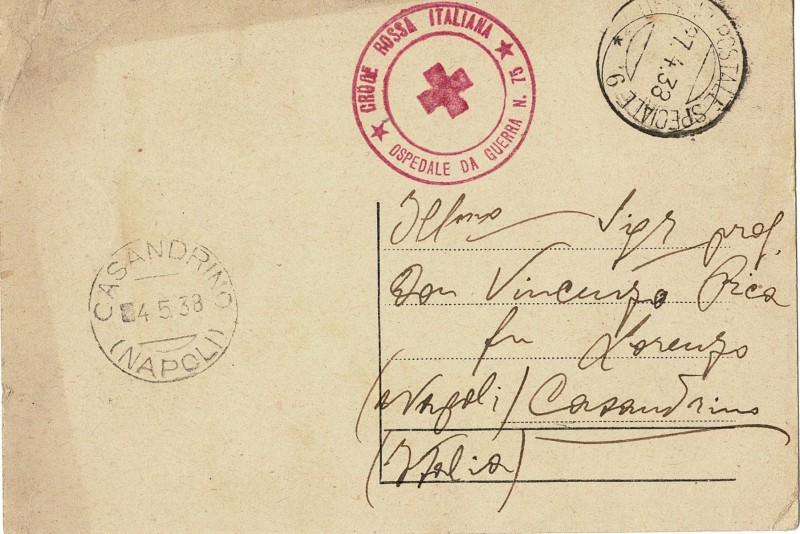 CROCE ROSSA ITALIANA
OSPEDALE DA GUERRA N. 75
POSTALE SPECIALE 6
27.4.38
CASANDRINO
4 5 38
(NAPOLI)
Illmo Sigr prof.
Don Vincenzo Pica
fu Lorenzo
(Napoli) Casandrino
(Italia)